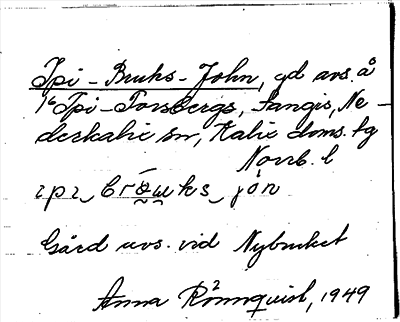 Spi-Bruks-John, gd avs. å
1⁶ Spi-Forsbergs, Sangis, Ne-
derkalix sn, Kalix doms. tg
Norrb. l
Gård avs. vid Nybruket
Anna Rönnquist, 1949